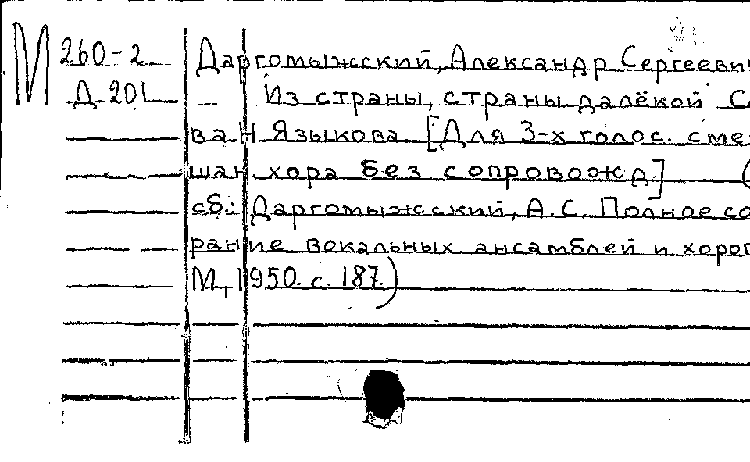 М 260-2 Даргомыжский, Александр Сергееви
Д 201 Из страны, страны далёкой С
ва Н Языкова. [Для 3-х голос. сме
шан. хора без сопровожд] (
сб: Даргомыжский, А.С. Полное со
рание вокальных ансамблей и хоров
М., 1950. с. 187.)